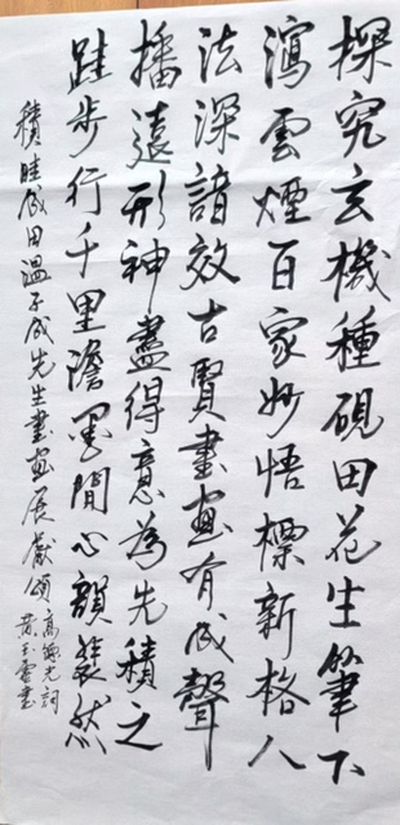 探究玄機種硯田花生筆下
瀉雲煙百家妙悟標新格八
法深諳效古賢書畫有成聲
播遠形神盡得意為先積之
跬步行千里澹墨閒心韻裴然
積畦成田溫子成先生書畫展獻頌
高光詞
黃玉書